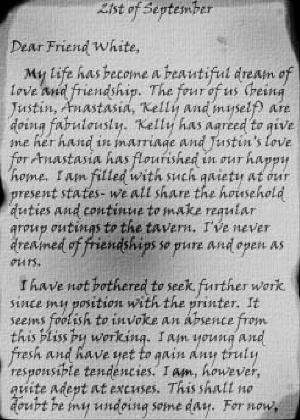 21st of September
Dear Friend White,
My life has become a beautiful dream of
love and friendship. The four of us (being
Justin, Anastasia, Kelly and myself) are
doing fabulously. Kelly has agreed to give
me her hand in marriage and Justin's love
for Anastasia has flourished in our happy
home. I am filled with such gaiety at our
present states- we all share the household
duties and continue to make regular
group outings to the tavern. I've never
dreamed of friendships so pure and open as
ours.
I have not bothered to seek further work
since my position with the printer. It
seems foolish to invoke an absence from
this bliss by working. I am young and
fresh and have yet to gain any truly
responsible tendencies. I am, however,
quite adept at excuses. This shall no
doubt be my undoing some day. For now,